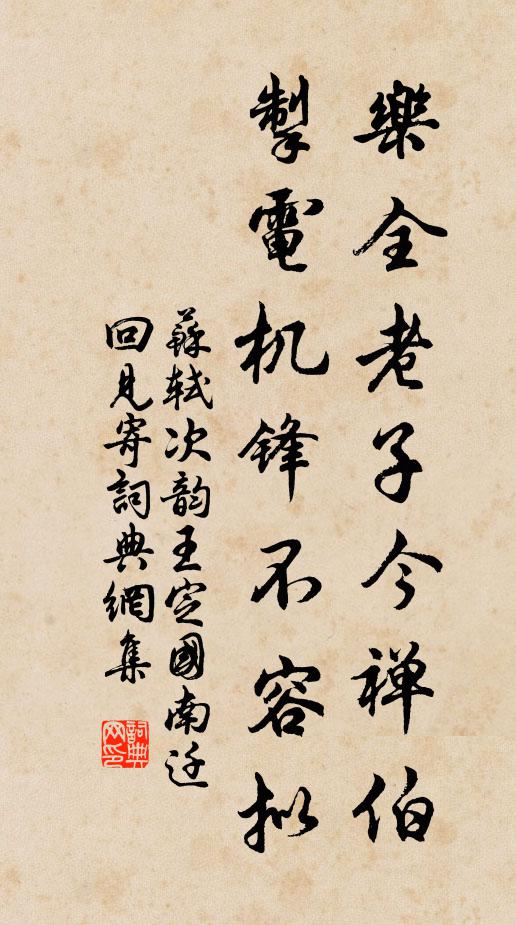 樂全老子今禅伯
掣電机鋒不容拟
蘇軾次韵王定國南迁
回見寄詞典網集
詞典
网印